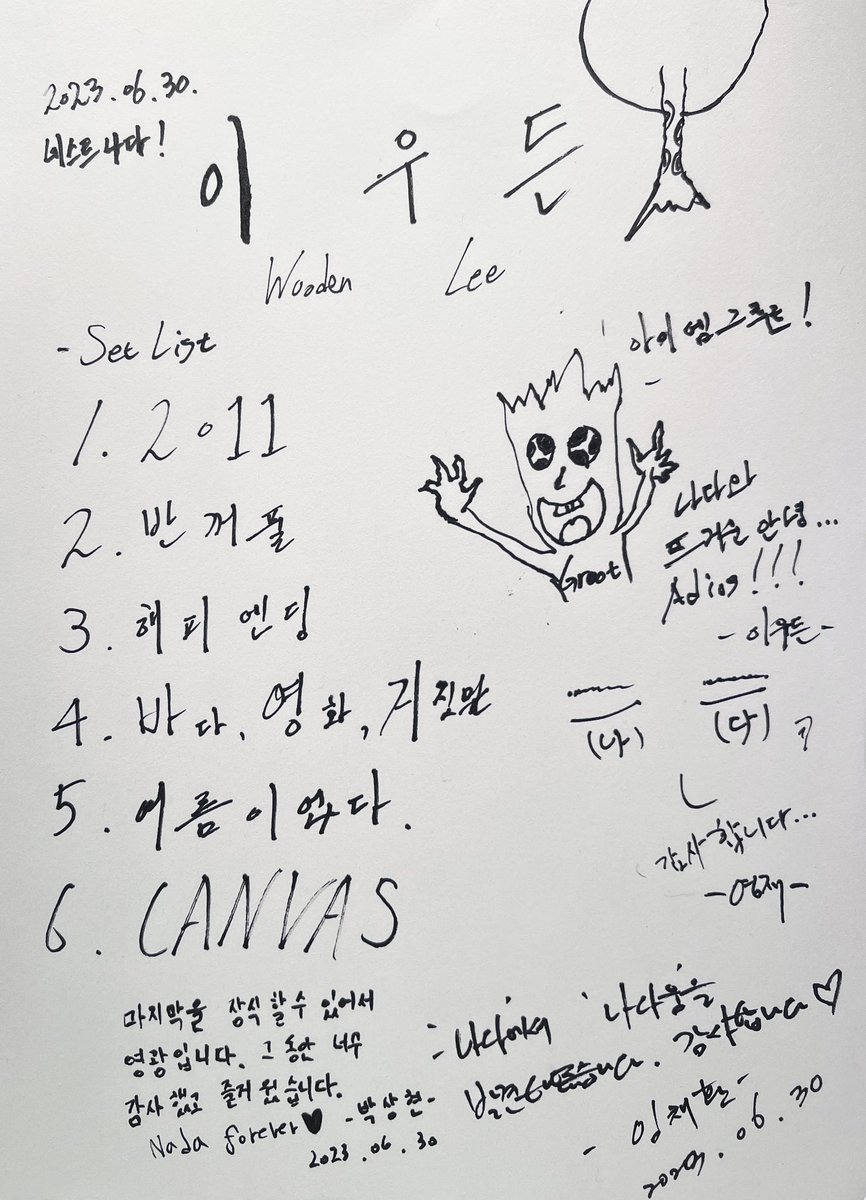 2023.06.30.
네스트나다!
이 우 든
Wooden Lee
- Set List
1. 2011
2. 반꺼풀
3. 해피엔딩
4. 바다, 영화, 거짓말
5. 여름이었다.
6. CANVAS
아이 엠 그루트!
Groot
나다와
뜨거운 안녕...
Adios!!!
-이우든-
(나) (다)?
감사합니다...
-영재-
마지막을 장식할 수 있어서
영광입니다. 그 동안 너무
감사했고 즐거웠습니다.
Nada forever♥ -박상현-
2023.06.30
- 나다에서 '나다움'을
감사합니다♡
- 임채환 -
2023.06.30